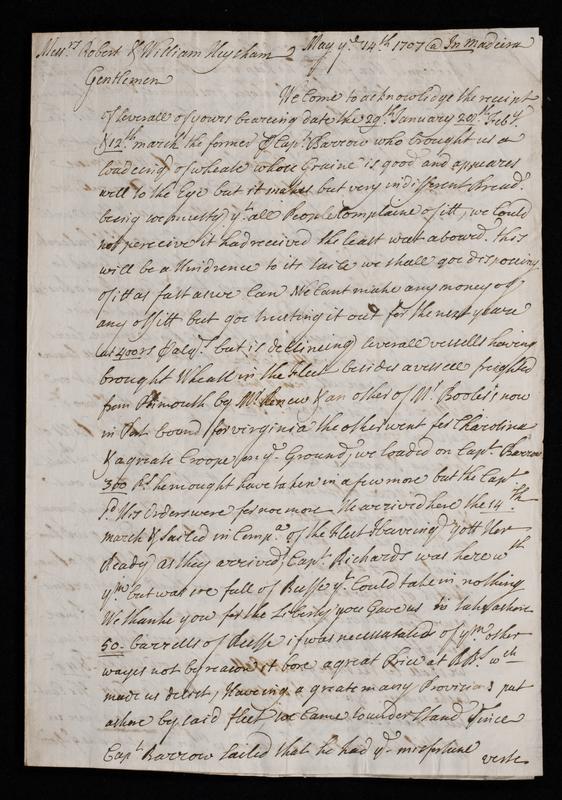 Mess.rs Robert & William Heysham May ye 14th 1707 @ In Madeira
Gentlemen
We come to acknowlidge the receipt
of severall of yours beareing date the 29th January 20th Feby.
& 12th march the former ℔ Capt. Barrow who brought us a
loadeing of wheate whose Graine is good and appeares
well to the Eye but it makes but very indifferent bread.
being so musty yt. all People Complaine of itt, we Could
not perceive it had received the least wett aboard. this
will be a hindrence to its Saile we shall goe disposeing
of itt as fast as we Can We Cant make any money of
any of itt but goe trusting it out for the next yeare
at 400rs ℔ alqr. but is declineing severall vessells haveing
brought Wheate in the fleet besides a vessell freighted
from Plimouth by Mr. & an other of Mr. Booles now
in Port bound for virginia the other went for Charolina
& a greate Croope on ye. Ground, we loaded on Capt. Barrow
360 Ps. he mought have taken in a few more but the Capt.
sd. His Orders were for no more He arrived here the 14th
march & Sailed in Compa. of the fleet haveing gott Her
Ready as they arrived Capt. Richards was here wth
ym. but was soe full of Beefe yt. Could take in nothing
We thanke you for the Liberty you Gave us in takeing ashore
50. barrells of Beefe if was necessitated of ym. other
wayes not by reason it bore a great Price at wch
made us desist, Haveing a greate many Provisions put
ashore by said fleet we Came to understand Since
Capt. Barrow Sailed that he had ye. misfortune